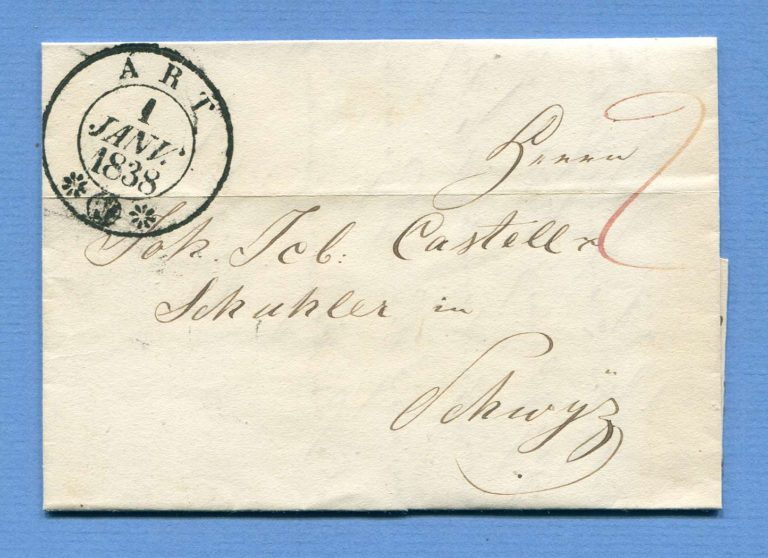 ART
1
JANV.
1838
Herrn
Joh. Jcb: Castell
Schuhler in
Schwÿz